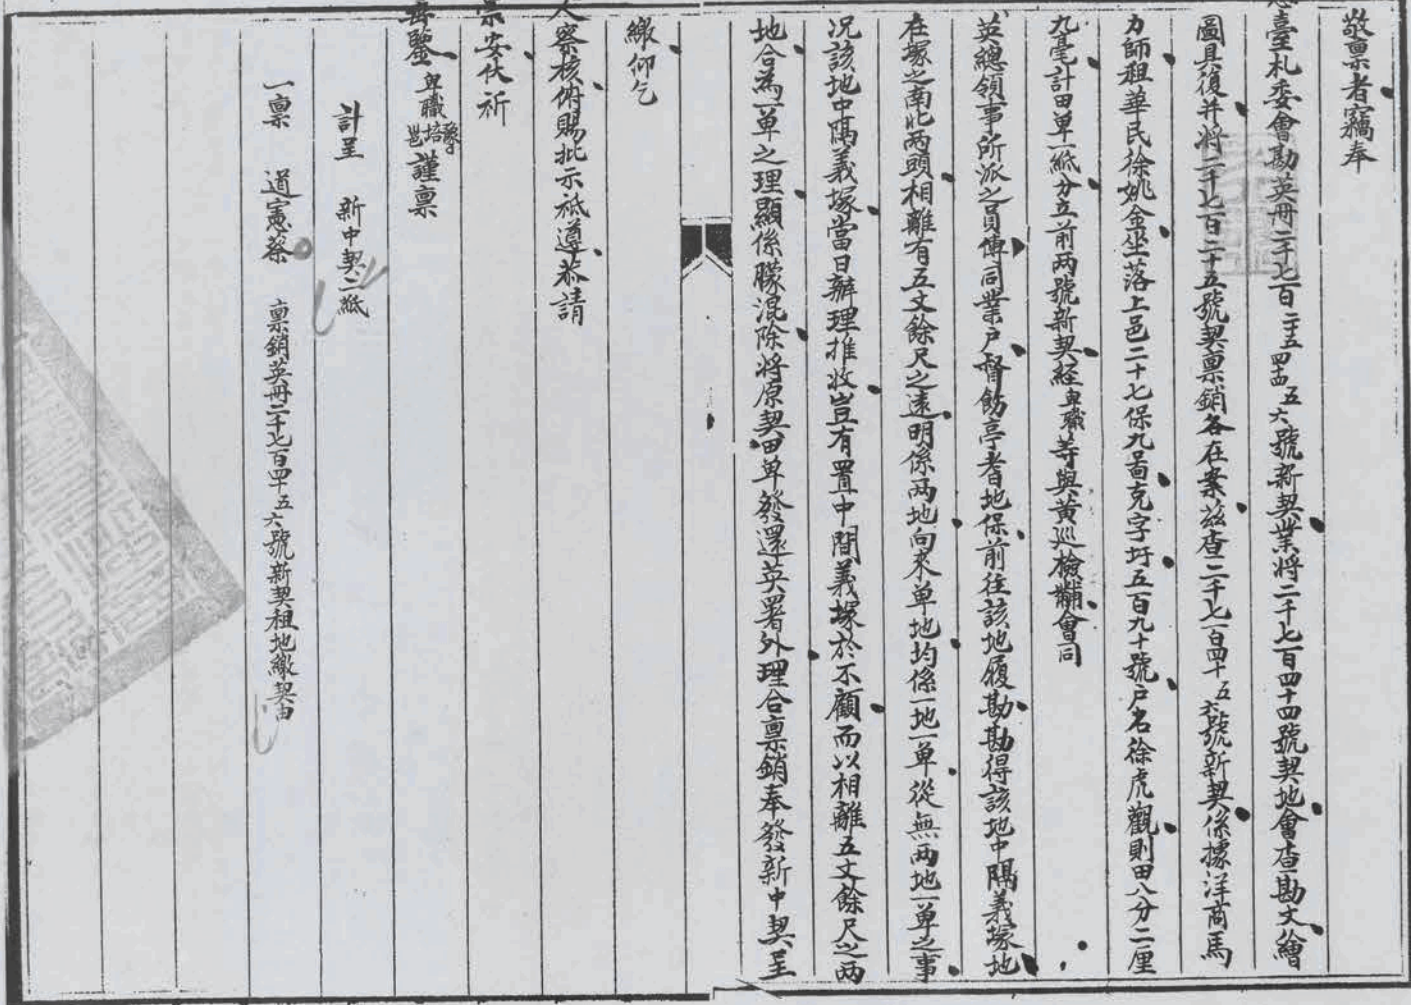 敬禀者竊奉
憲臺札委會勘英冊二千七百二十五四十四五六號新契業將二千七百四十四號契地會查勘丈繪
圖具復并將二千七百二十五號契禀銷各在案茲查二千七百四十五六號新契係據洋商馬
力師租華民徐姚金坐落上邑二十七保九啚克字圩五百九十號户名徐虎觀則田八分二厘
九毫計田单一紙分立前两號新契經卑職等與黄巡檢黼會同
英總領事所派之員傅同業户督飭亭耆地保前往該地履勘勘得該地中隔義塚地
在塚之南北两頭相離有五丈餘尺之遠明係两地向來单地均係一地一单從無两地一单之事
况該地中隔義塚當日辦理推收豈有置中間義塚於不顧而以相離五丈餘尺之两
地合為一单之理顯係朦混除將原契田单發還英署外理合禀銷奉發新中契呈
繳仰乞
大人察核俯賜批示祗遵恭請
崇安伏祈
垂鑒卑職謹禀
計呈 新中契二紙
一禀 道憲蔡 禀銷英冊二千七百四十五六號新契租地繳契由